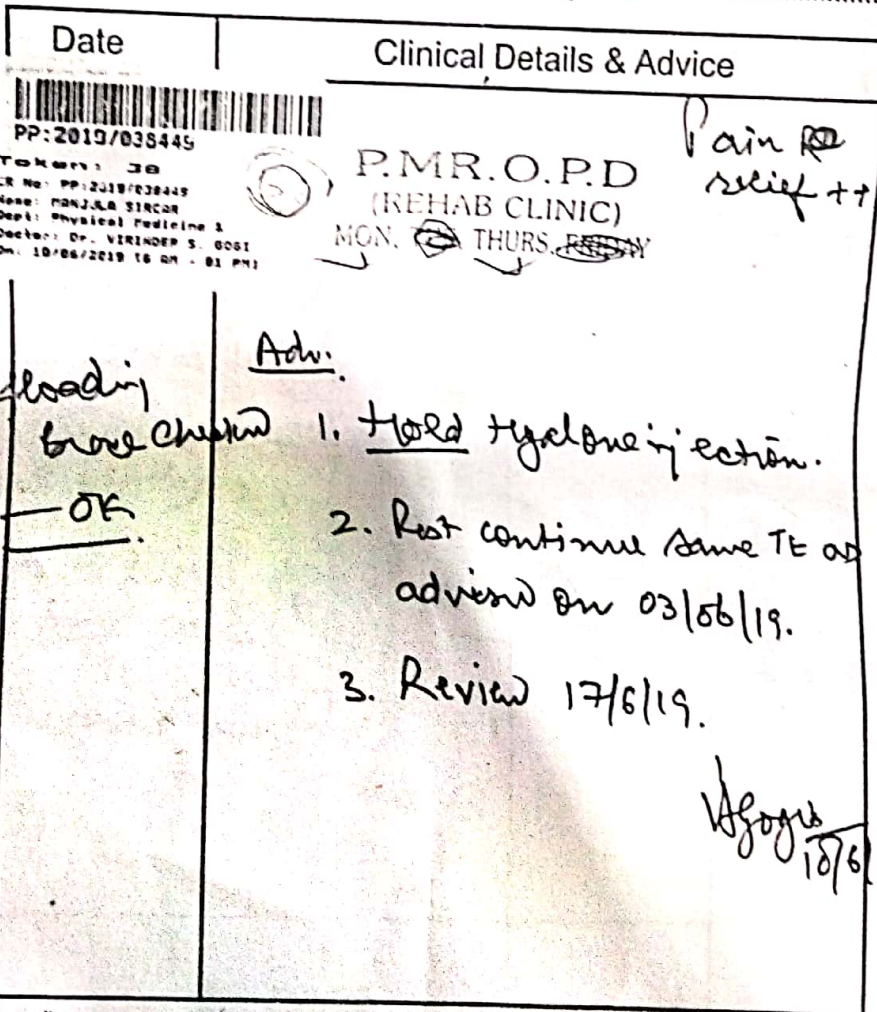 Date
Clinical Details & Advice
PP:2019/038449
Token: 38
CR No: PP:2019/038449
Name: MANJULA SIRCAR
Dept: Physical Medicine &
Doctor: Dr. VIRINDER S. GOGI
On: 10/06/2019 (6 AM - 01 PM)
P.M.R.O.P.D
(REHAB CLINIC)
MON. THURS.
Pain
relief ++
loading
brace Checked
- OK
Adv.
1. Hold Hyalone injection.
2. Rest continue same Tt as
advised on 03/06/19.
3. Review 17/6/19.
10/6/